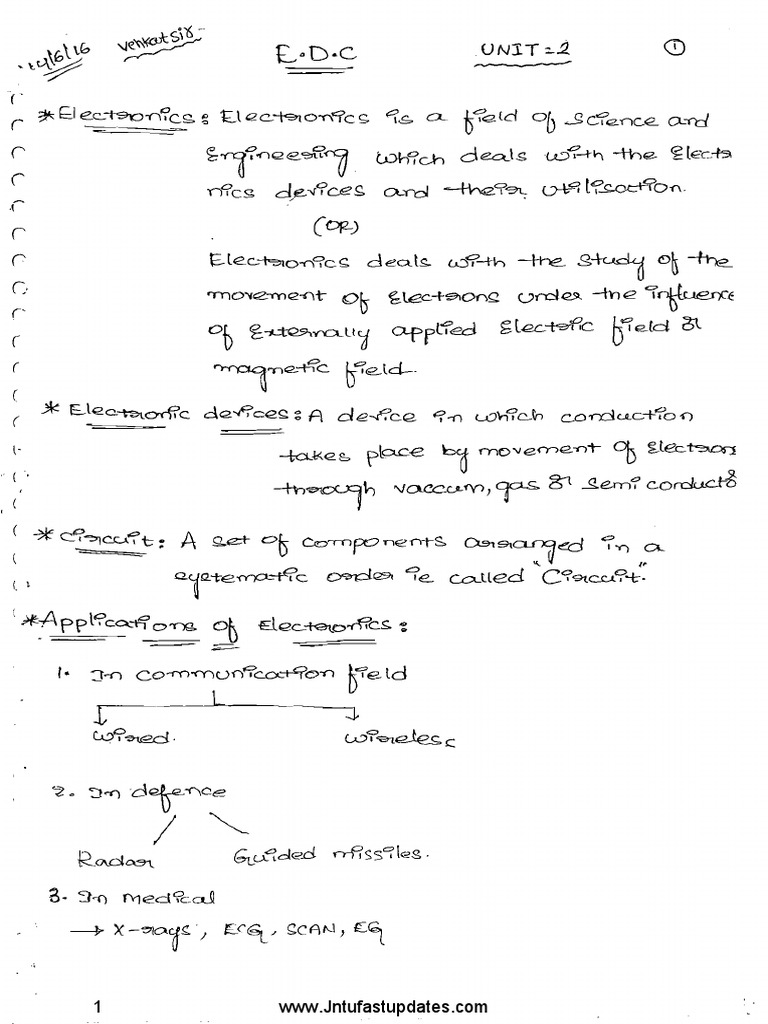 14/6/16 Venkat sir E.D.C UNIT=2 1
*Electronics: Electronics is a field of science and
Engineering which deals with the Electro
nics devices and their utilisation.
(OR)
Electronics deals with the study of the
movement of Electrons under the influence
of Externally applied Electric field or
magnetic field.
* Electronic devices: A device in which conduction
takes place by movement of Electrons
through vaccum, gas or semi conductor
*Circuit: A set of components arranged in a
systematic order is called "Circuit"
*Applications of Electronics:
1. In communication field
wired. wireless
2. In defence
Radar Guided missiles.
3. In medical
→ X-rays, ECG, SCAN, EG
1 www.Jntufastupdates.com